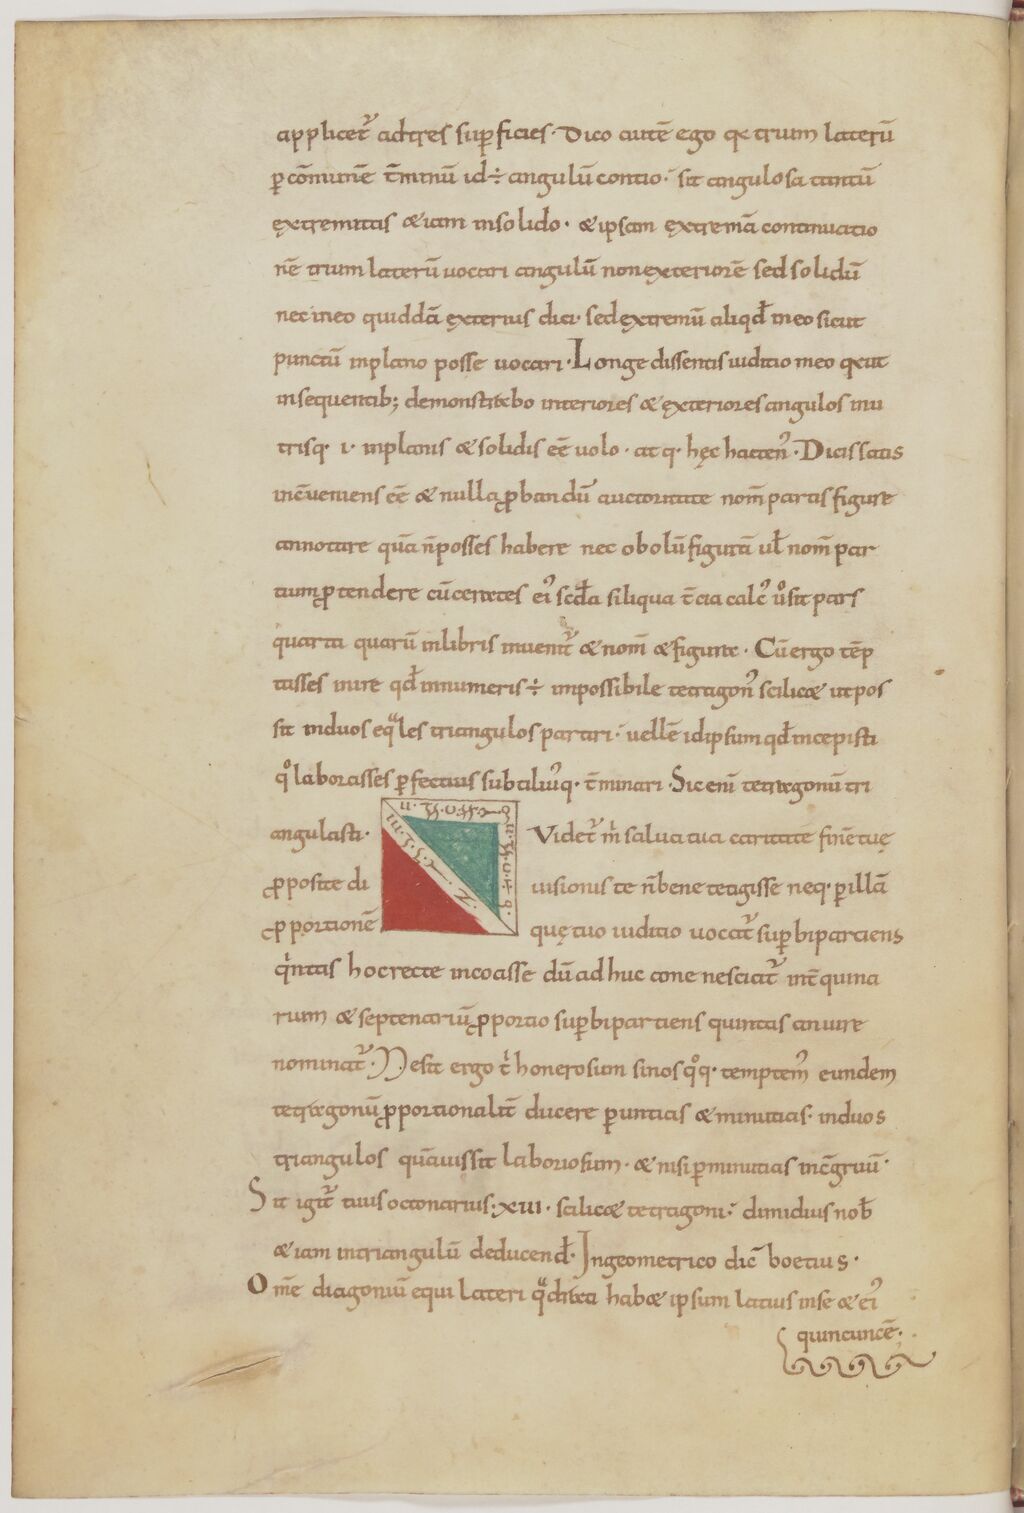 applicet᷑ adtres sup̱ficies· Dico autē ego qꝛ trium laterū
ꝑcōmunē t̄minū id÷ angulū contio· sit angulosa tantū
ęxtremitas &iam insolido· &ipsam ęxtremā continuatio
nē trium laterū uocari angulū nonexteriorē sed solidū
nec ineo quiddā ęxterius dici· sed extremū aliqđ ineo sicut
punctū inplano posse uocari· Longe dissentis iuditio meo
insequentib; demonstrabo interiores & exteriores angulos inu
trisq· i· inplanis & solidis eē uolo· at q· hęc hacten᷒· Dicis satis
incueniens eē & nulla ꝓbandū auctoritate nom̄ partis figure
annotare quā n̄ posses habere nec obolū figurā uł nom̄ par
tium ꝓtendere cū cerates ei᷒ scđa siliqua t̄cia calc᷒ u͛ sit pars
quarta quarū inlibris inuenit᷑ & nom̄ & figura· Cū ergo tēp
tasses inire qđ innumeris÷ impossibile tetragon᷒ scilic& ut pos
sit induos eq̈les triangulos partiri· uellē idipsum qđ incepisti
qͦ laborasses ꝑfectius subtiliu᷒q· t̄minari· Sic enī tetragonū tri
angulasti· Videt᷑ m̍ salua tua caritate finē tuę
ꝓposite di uisionis te n̄ bene tetigisse neq· ꝑ illā
ꝓportionē quę tuo iuditio uocat᷑ sup̱bipartiens
q̍ntas hoc recte incoasse dū ad huc tone nesciat᷑ int̄ quina
rium & septenariū ꝓportio sup̱bipartiens quintas an iure
nominat᷑· N̄ sit ergo t̍ honerosum si nos qͦq· temptem᷒ eundem
tetragonū ꝓportionalit̄ ducere ꝑ untias & minutias· induos
triangulos quāuis sit laboriosum· & nisi ꝑ minutias incgruū·
Sit igit᷑ tuus octonarius· xui· scilic& tetragoni· dimidius nob̄
&iam intriangulū deducend̄· Ingeometrico dic̄ boetius·
Omē diagoniū equilateri q̈drati hab& ipsum latius inse & ei᷒
quincuncē·